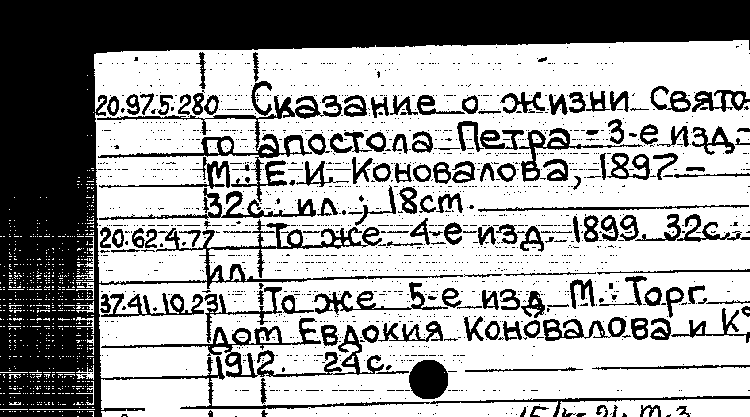 20.97.5.280 Сказание о жизни Свято-
го апостола Петра.- 3-е изд.-
М.: Е.И. Коновалова, 1897.-
32с.: ил.; 18см.
20.62.4.77 То же. 4-е изд. 1899. 32с.:
ил.
37.41.10.231 То же. 5-е изд. М.: Торг.
дом Евдокия Коновалова и К°,
1912. 24с.